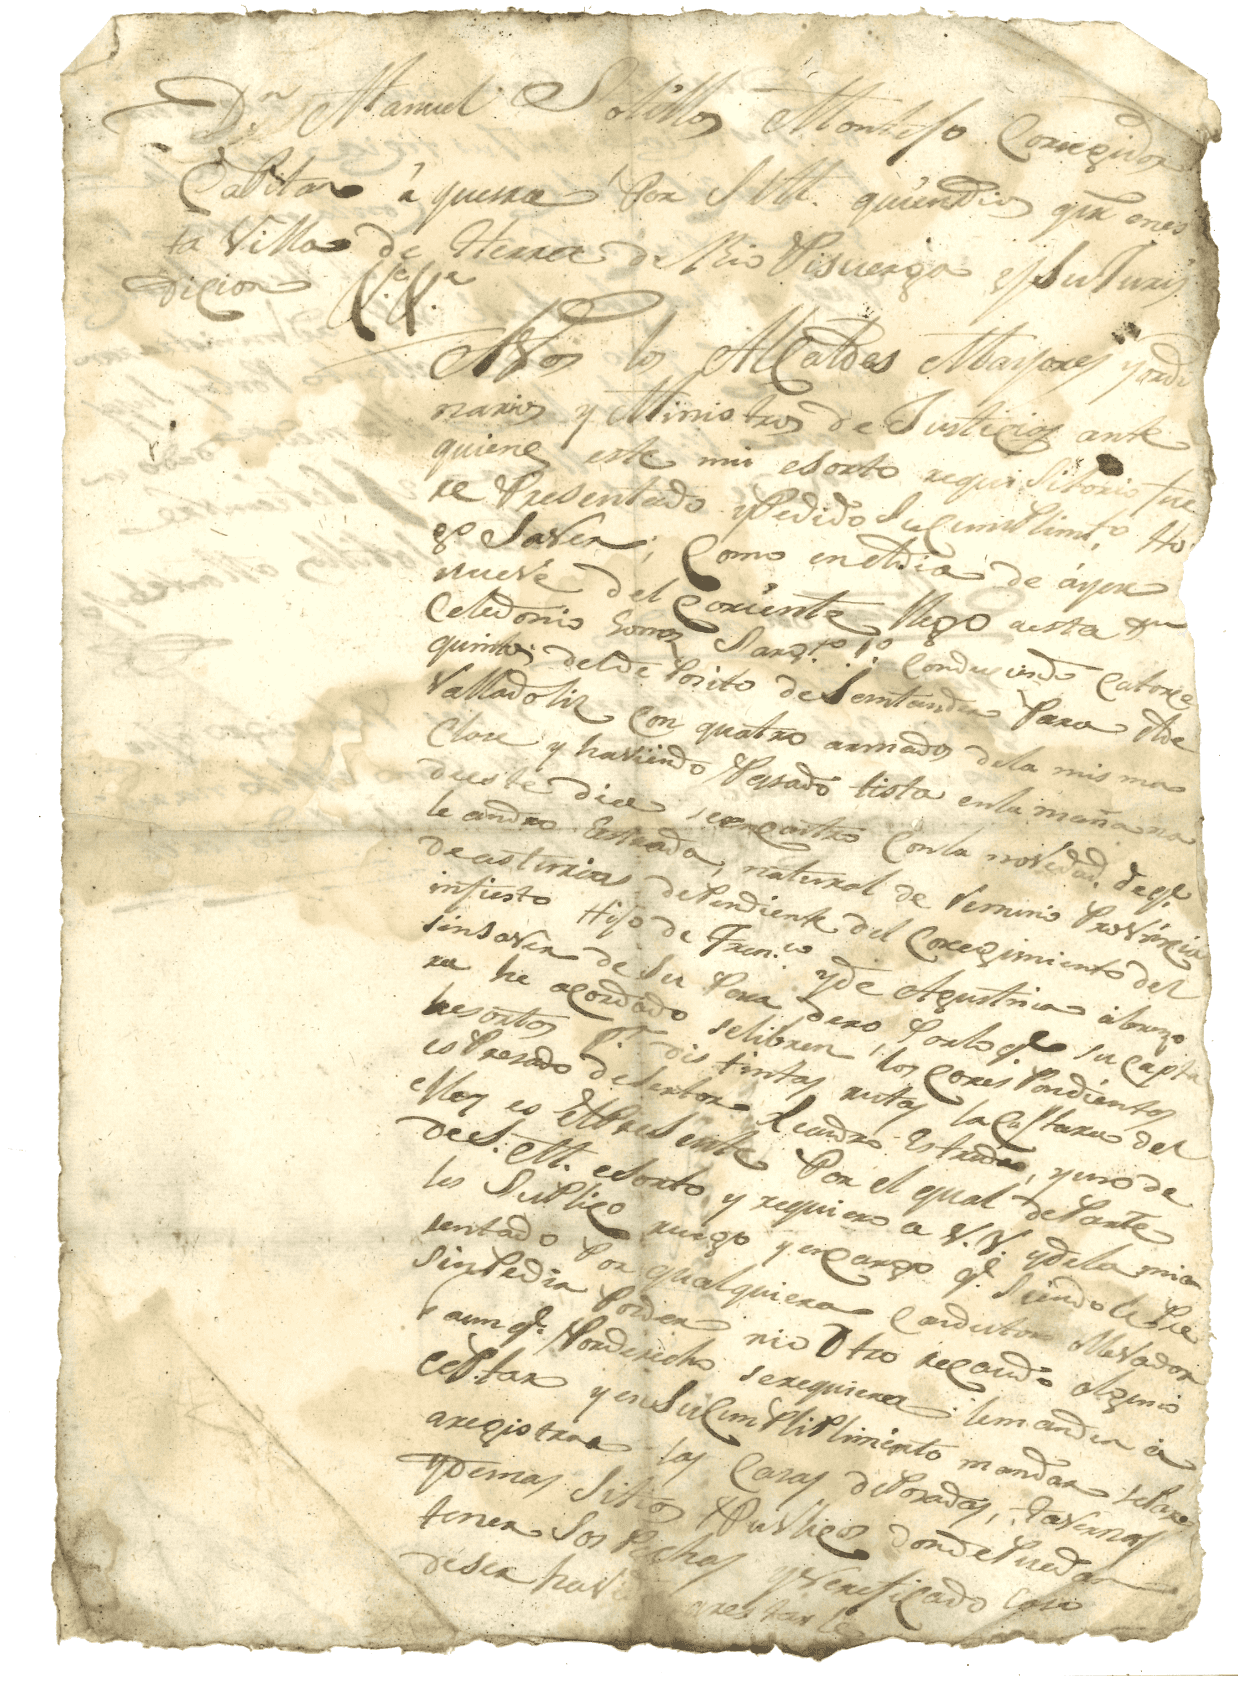 Dn Manuel Sotillo Montejo Corregidor
Capitan á guerra por S.M. que Dios gue en es
ta Villa de Herrera de Rio Pisuerga y su Juris
dicion &a &a
A Vos los Alcaldes Mayores y ordi
narios y Ministros de Justicia ante
quienes este mi esorto requisitorio fue
re Presentado y Pedido su cumplimto. Ha
go Saver; Como en el dia de áyer
nueve del Coriente llego a esta
Celedonio Gomez Sargto. 1o. conduciendo Catorce
quintos del de Posito de Santander Para el de
Valladoliz con quatro armados de la misma
Clase y haviendo Pasado lista en la mañana
de este dia se encontro con la novedad, de qe.
Leandro Estrada, natural de Provincia
de asturias dependiente del Coregimiento del
infiesto Hijo de Franco. y de Agustina
sin saver de su Paradero, Por lo qe. su captu
ra he acordado se libren los corespondientes
hesortos Pr. distintas rutas la Captura del
espresado desertor Leandro Estrada, y uno de
ellos es el Presente Por el qual de Parte
de S.M. esorto, y requiero a V.V. y de la mia
les suplico ruego y encargo qe. siendole Pre
sentado Por qualquiera Conductor o llevador
sin Pedir Poder ni otro recaudo alguno
aunqe. Por derecho se requiera: le manden á
ceptar y en su cumplimiento mandar se
a registrar las Casas de Posadas, tavernas
y demas sitios Publicos donde Puedan
tener sospechas y verificado caso
de ser havido arestarle